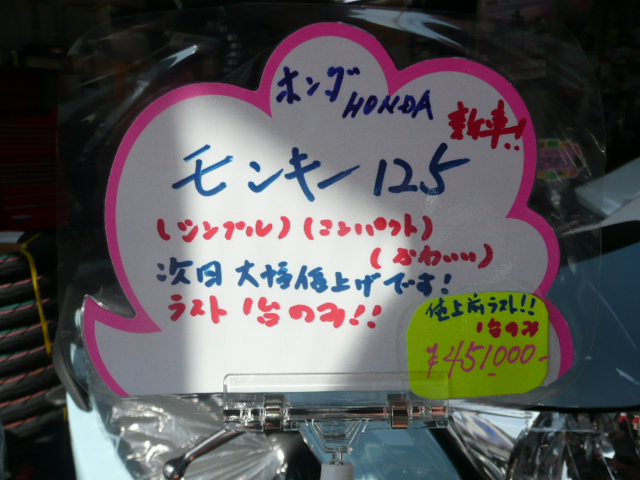 ホンダ
HONDA
新車!
モンキー125
(シンプル)(コンパクト)
(かわいい)
次回大幅値上げです!
ラスト1台のみ!!
値上前ラスト!!
1台のみ
¥451,000-